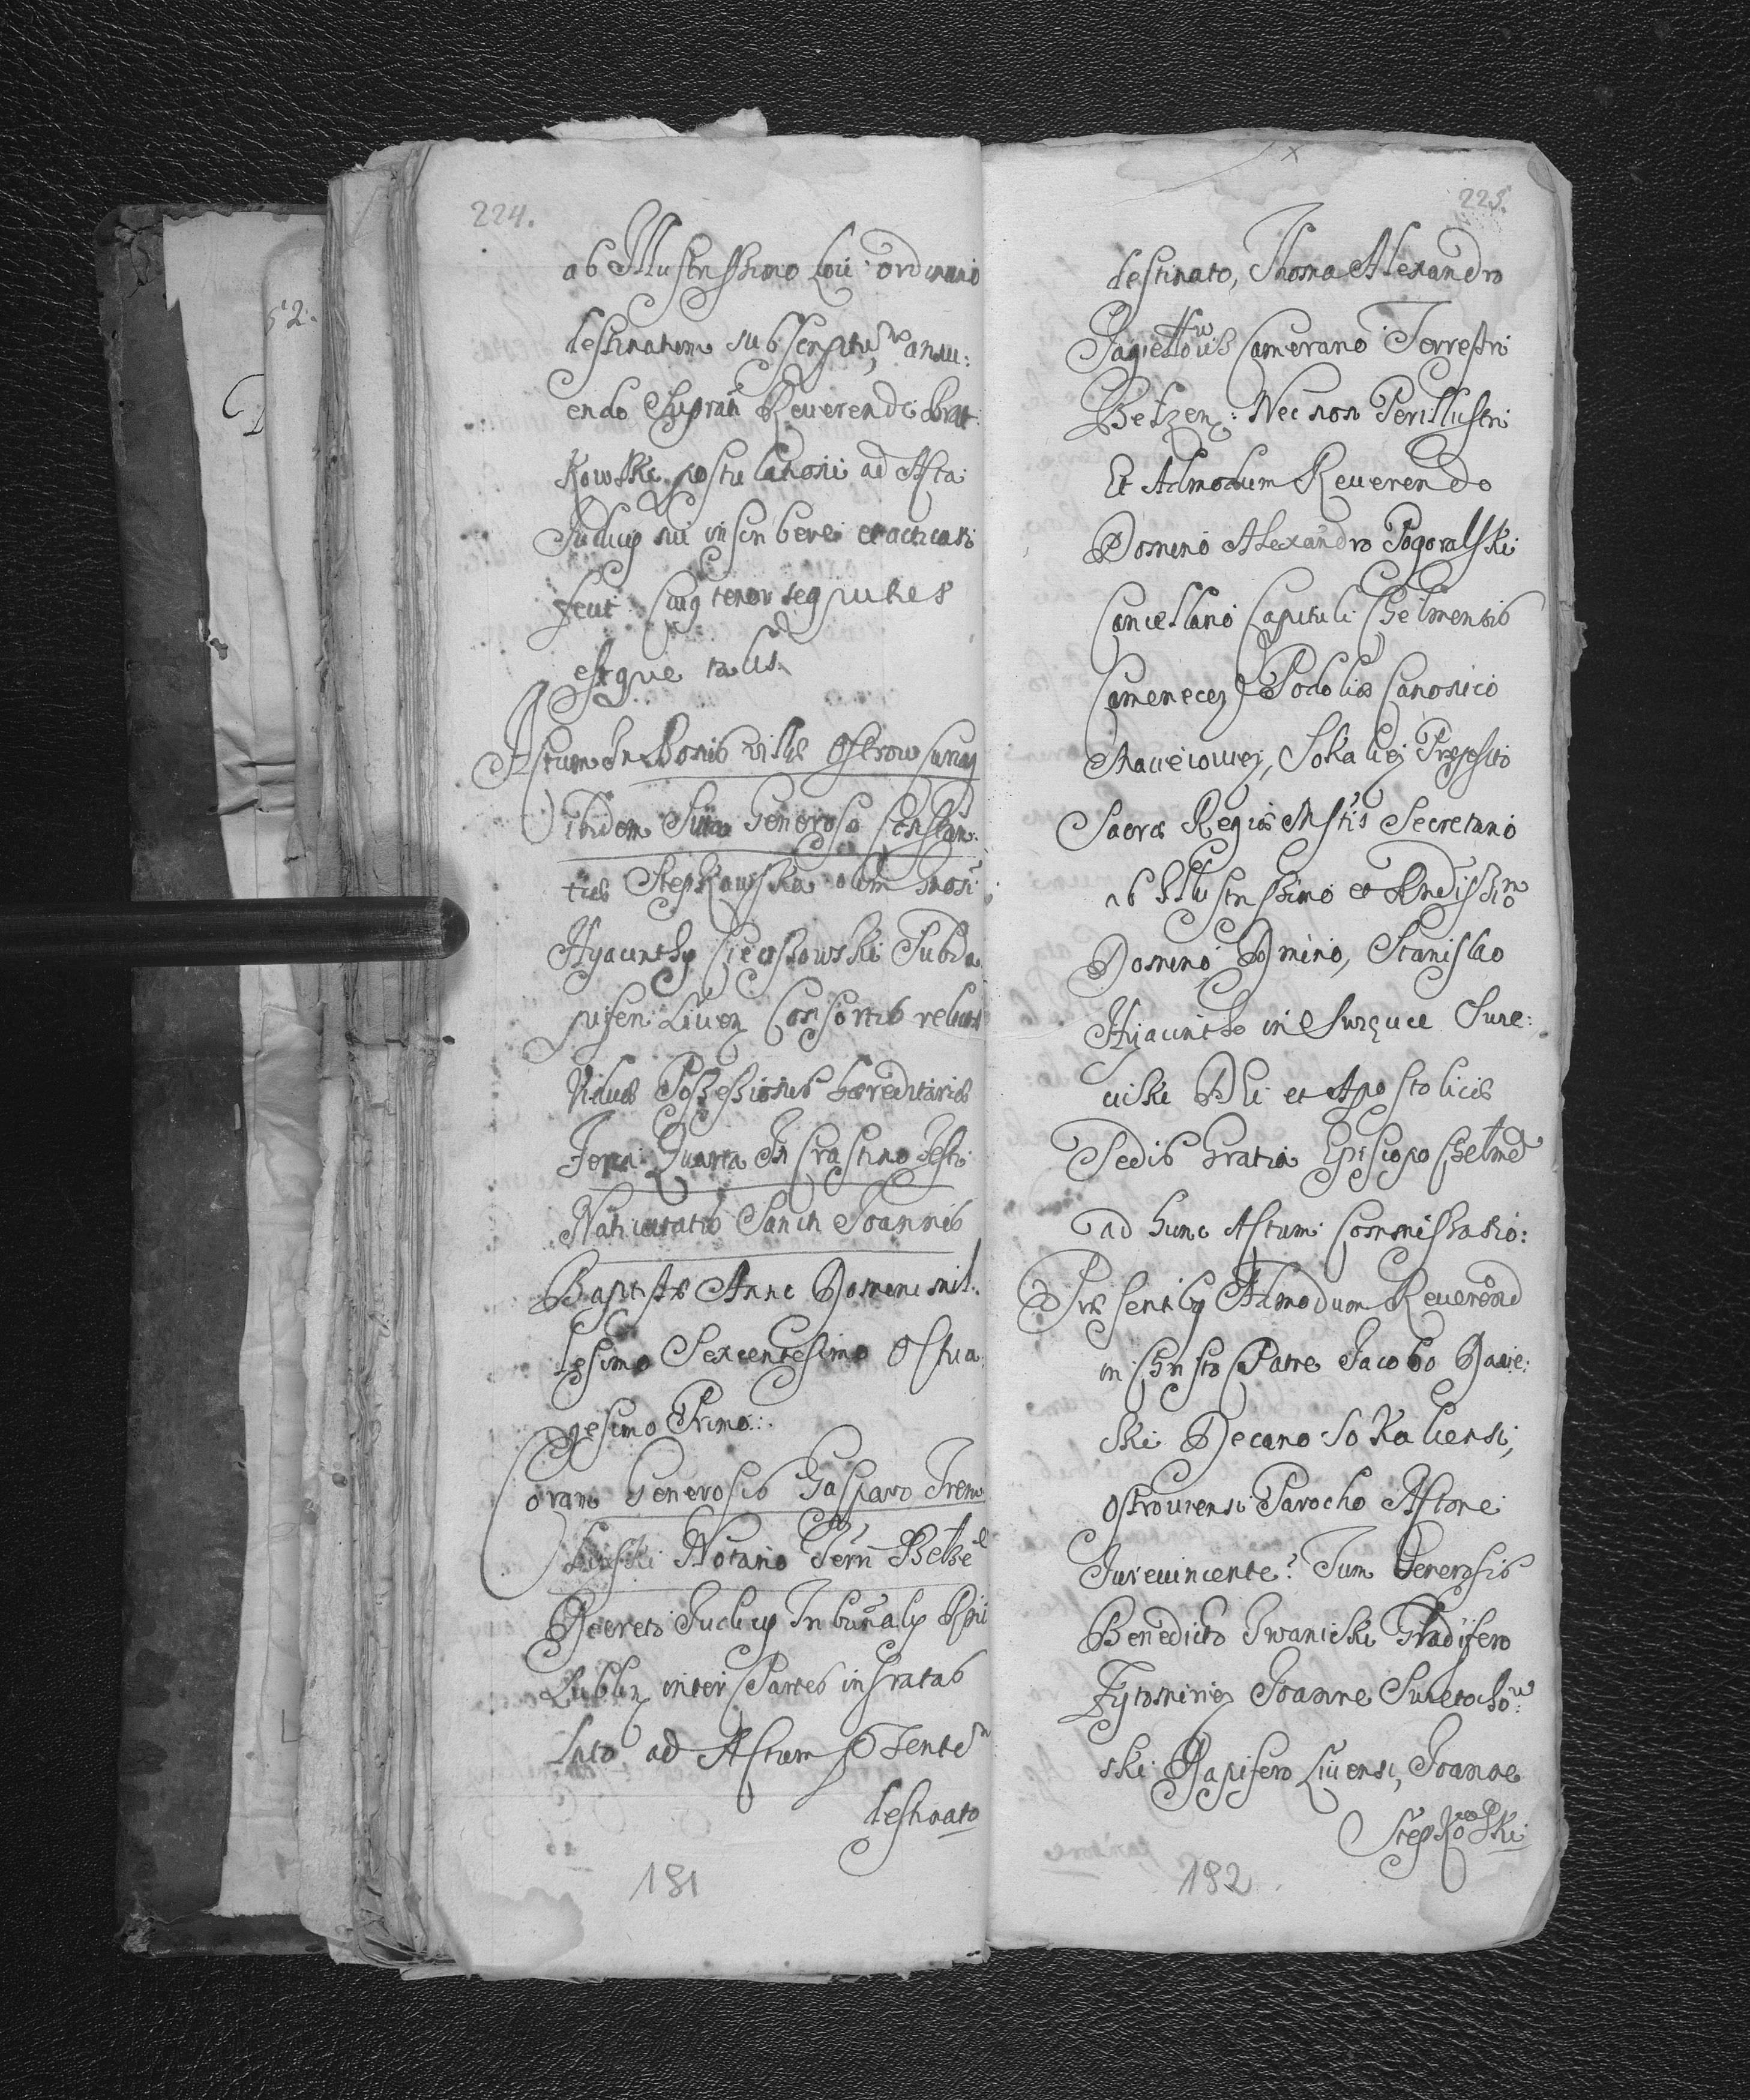 224.
ab Illustrissimo Loci ordinario
destinatum subscriptu, annu:
endo Supran Reverendi Brat:
kowski postulationi ad Acta
Judicy sui inscriberei et acticari
fecit Cuiq tenor seq
estque talis
Actum In Bonis villæ Ostrow
ibidem Generosa Constan:
tiæ Stepkowska olim Gnosi
Hyacinthy Ciecissowski Subda
pifen: Liven Consortis relictæ
Viduæ Possessionis hæreditariæ
Feria Quarta In Crastino Festi
Nativitatis Sancti Joannis
Baptistæ Anni Domini mil:
lesimo Sexcentesimo Octua
gesimo Primo:.
Coram Generosis Gasparo
Notario Terri Belzē
Decreto Judicy Tribunaly Rgni
Lublin inter Partes infratas
lato ad Actum
destinato
181
225.
destinato, Thoma Alexandro
Camerario Terrestri
Belzen: Nec non Perillustri
Et Admodum Reverendo
Domino Alexandro Pogoralski
Cancellario Capituli Chelmensis
Camenecen Podoliæ Canonico
Macieiovien, Sokalien Præposito
Sacræ Regiæ Mstis Secretario
ab Illustrissimo et Rndissimo
Domino Dmino, Stanislao
Hyacintho in Swięcice Swie:
cicki Dei et Apostolicæ
Sedis Gratia Episcopo Chelmen
ad hunc Actum Commissario:
Præsentiby Admodum Reverend
in Christo Patre Jacobo
ski Decano Sokaliensi,
Ostroviensi Parocho Actore
Jurevincente? Tum Generosis
Benedicto Iwanicki Gladifero
Zytomirien Joanne Swietochow:
ski Dapifero Livensi, Joanne
Stepkowski
182